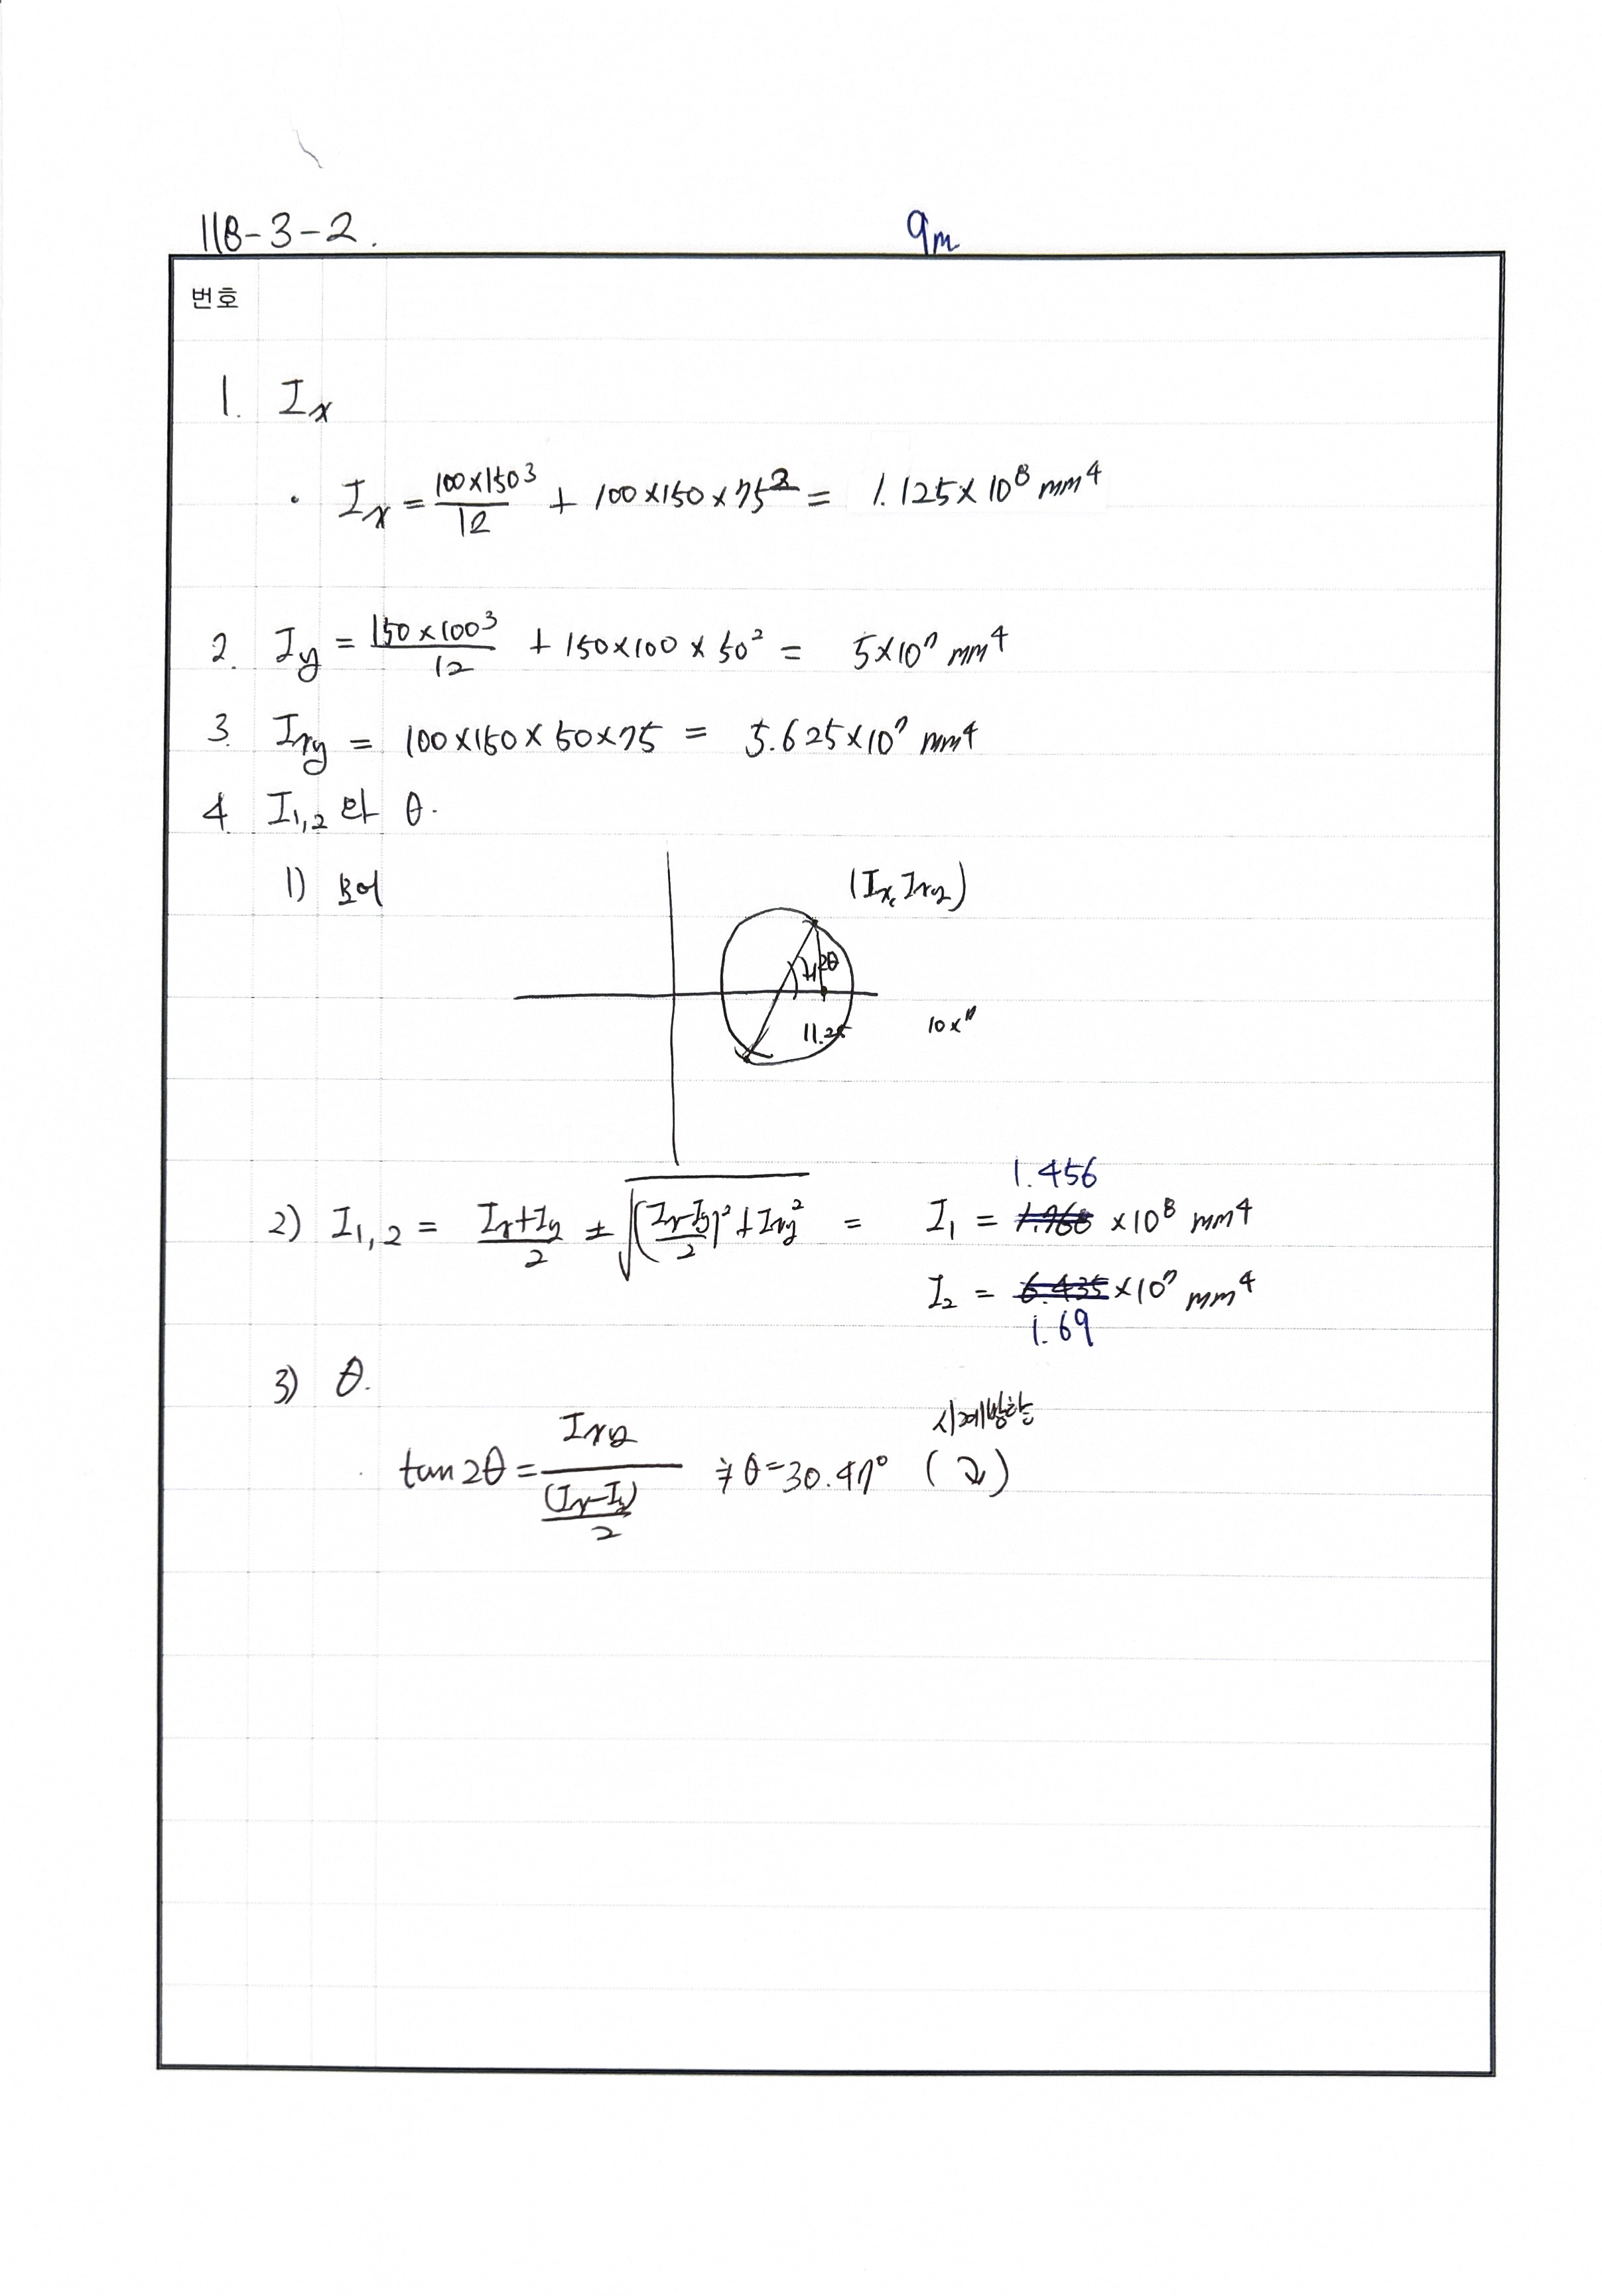 118-3-2.
9m
번호
1. Ix
· Ix = 100×150³/12 + 100×150×75² = 1.125×10⁸ mm⁴
2. Iy = 150×100³/12 + 150×100×50² = 5×10⁷ mm⁴
3. Ixy = 100×150×50×75 = 5.625×10⁷ mm⁴
4. I1,2 와 θ.
1) 모어
(Ix, Ixy)
2θ
11.25
10×⁷
1.456
2) I1,2 = (Ix+Iy)/2 ± √((Ix-Iy)/2)²+Ixy² = I1 = ×10⁸ mm⁴
I2 = 6.435 ×10⁷ mm⁴
1.69
3) θ.
시계방향
tan2θ = Ixy/((Ix-Iy)/2) ⇒ θ=30.47° (↻)